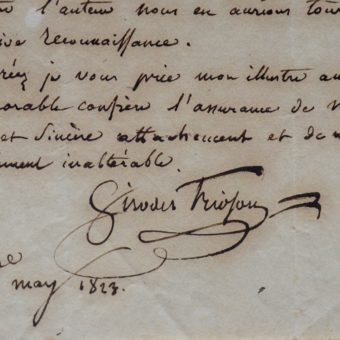 l'auteur nous en aurions tou
ive reconnaissance.
je vous prie mon illustre a
orable confrère l'assurance de
et Sincère attachement et de
ment inaltérable.
Girodet Trioson
may 1823.